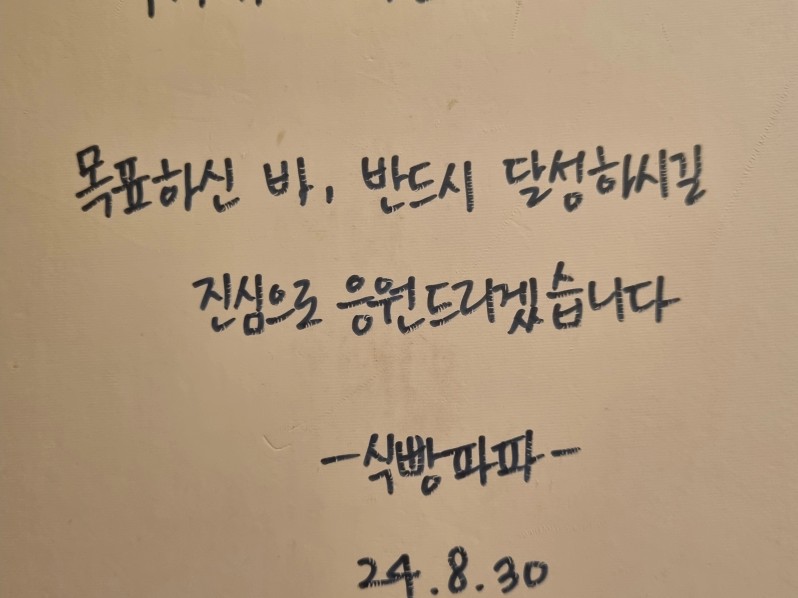 목표하신 바, 반드시 달성하시길
진심으로 응원드리겠습니다
-식빵파파-
24.8.30